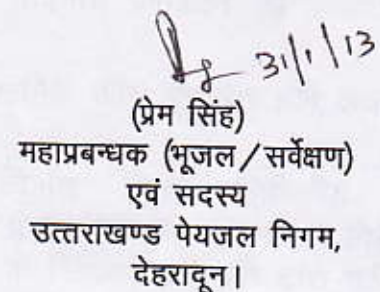 31/1/13
(प्रेम सिंह)
महाप्रबन्धक (भूजल/सर्वेक्षण)
एवं सदस्य
उत्तराखण्ड पेयजल निगम,
देहरादून।